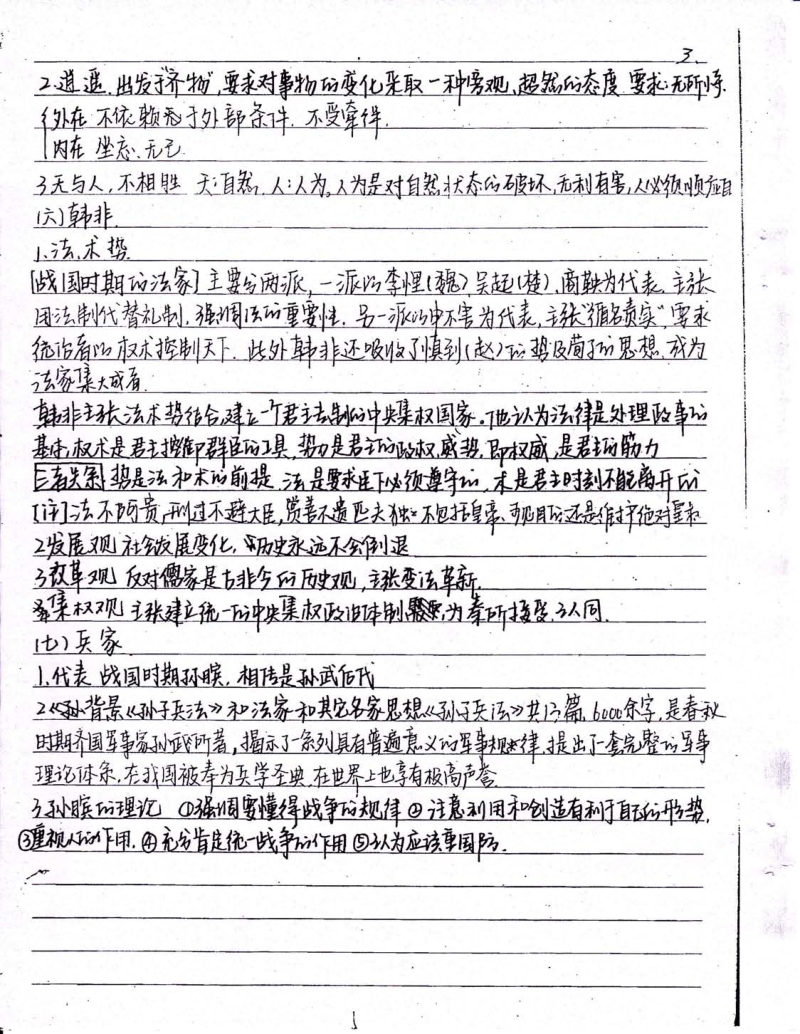 3.
2.逍遥.出发于“齐物”,要求对事物的变化采取一种旁观、超然的态度 要求:无所恃.
外在 不依赖于外部条件.不受牵绊.
内在 坐忘、无己
3天与人,不相胜 天:自然,人:人为,人为是对自然状态的破坏,无利有害,人必须顺应自
(六)韩非.
1.法.术.势.
[战国时期的法家]主要分两派,一派以李悝(魏).吴起(楚).商鞅为代表.主张
用法制代替礼制.强调法的重要性.另一派以申不害为代表,主张“循名责实”,要求
统治者以权术控制天下.此外韩非还吸收了慎到(赵)的势及荀子的思想.成为
法家集大成者.
韩非主张法术势结合,建立一个君主专制的中央集权国家.他认为法律是处理政事的
基本,权术是君主控御群臣的工具,势力是君主的政权,威势,即权威,是君主的筋力
三者关系 势是法和术的前提.法是要求臣下必须遵守的.术是君主时刻不能离开的
[注]法不阿贵,刑过不避大臣,赏善不遗匹夫 独不包括皇帝.目的还是维护绝对
2发展观 社会发展变化,历史永远不会倒退
3改革观 反对儒家是古非今的历史观,主张变法革新.
集权观 主张建立统一的中央集权政治体制,为秦所接受.认同.
(七)兵家.
1.代表 战国时期孙膑.相传是孙武后代
2背景《孙子兵法》和法家和其它名家思想《孙子兵法》共13篇.6000余字,是春秋
时期齐国军事家孙武所著,揭示了一系列具有普遍意义的军事规律,提出了一套完整的军事
理论体系.在我国被奉为兵学圣典.在世界上也享有极高声誉.
3.孙膑的理论 ①强调要懂得战争的规律 ②注意利用和创造有利于自己的形势.
③重视人的作用.④充分肯定统一战争的作用 ⑤认为应该重国防.